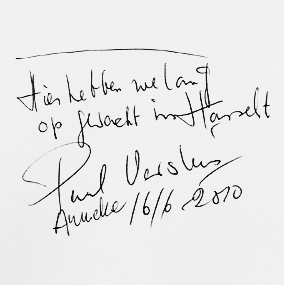 Hier hebben we lang
op gewacht in Hasselt
Paul
Anneke 16/6 2010